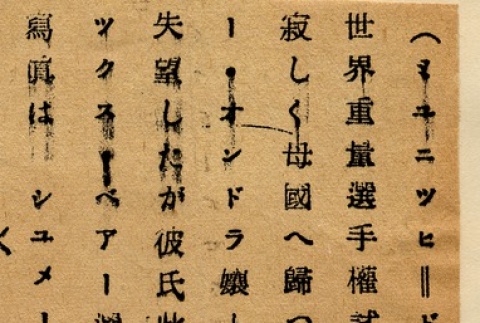 （ミユニツヒ＝ド
世界重量選手權試
寂しく母國へ歸つ
ー・オンドラ孃
失望したが彼氏此
ツクスーベアー
寫眞は シユメー
く